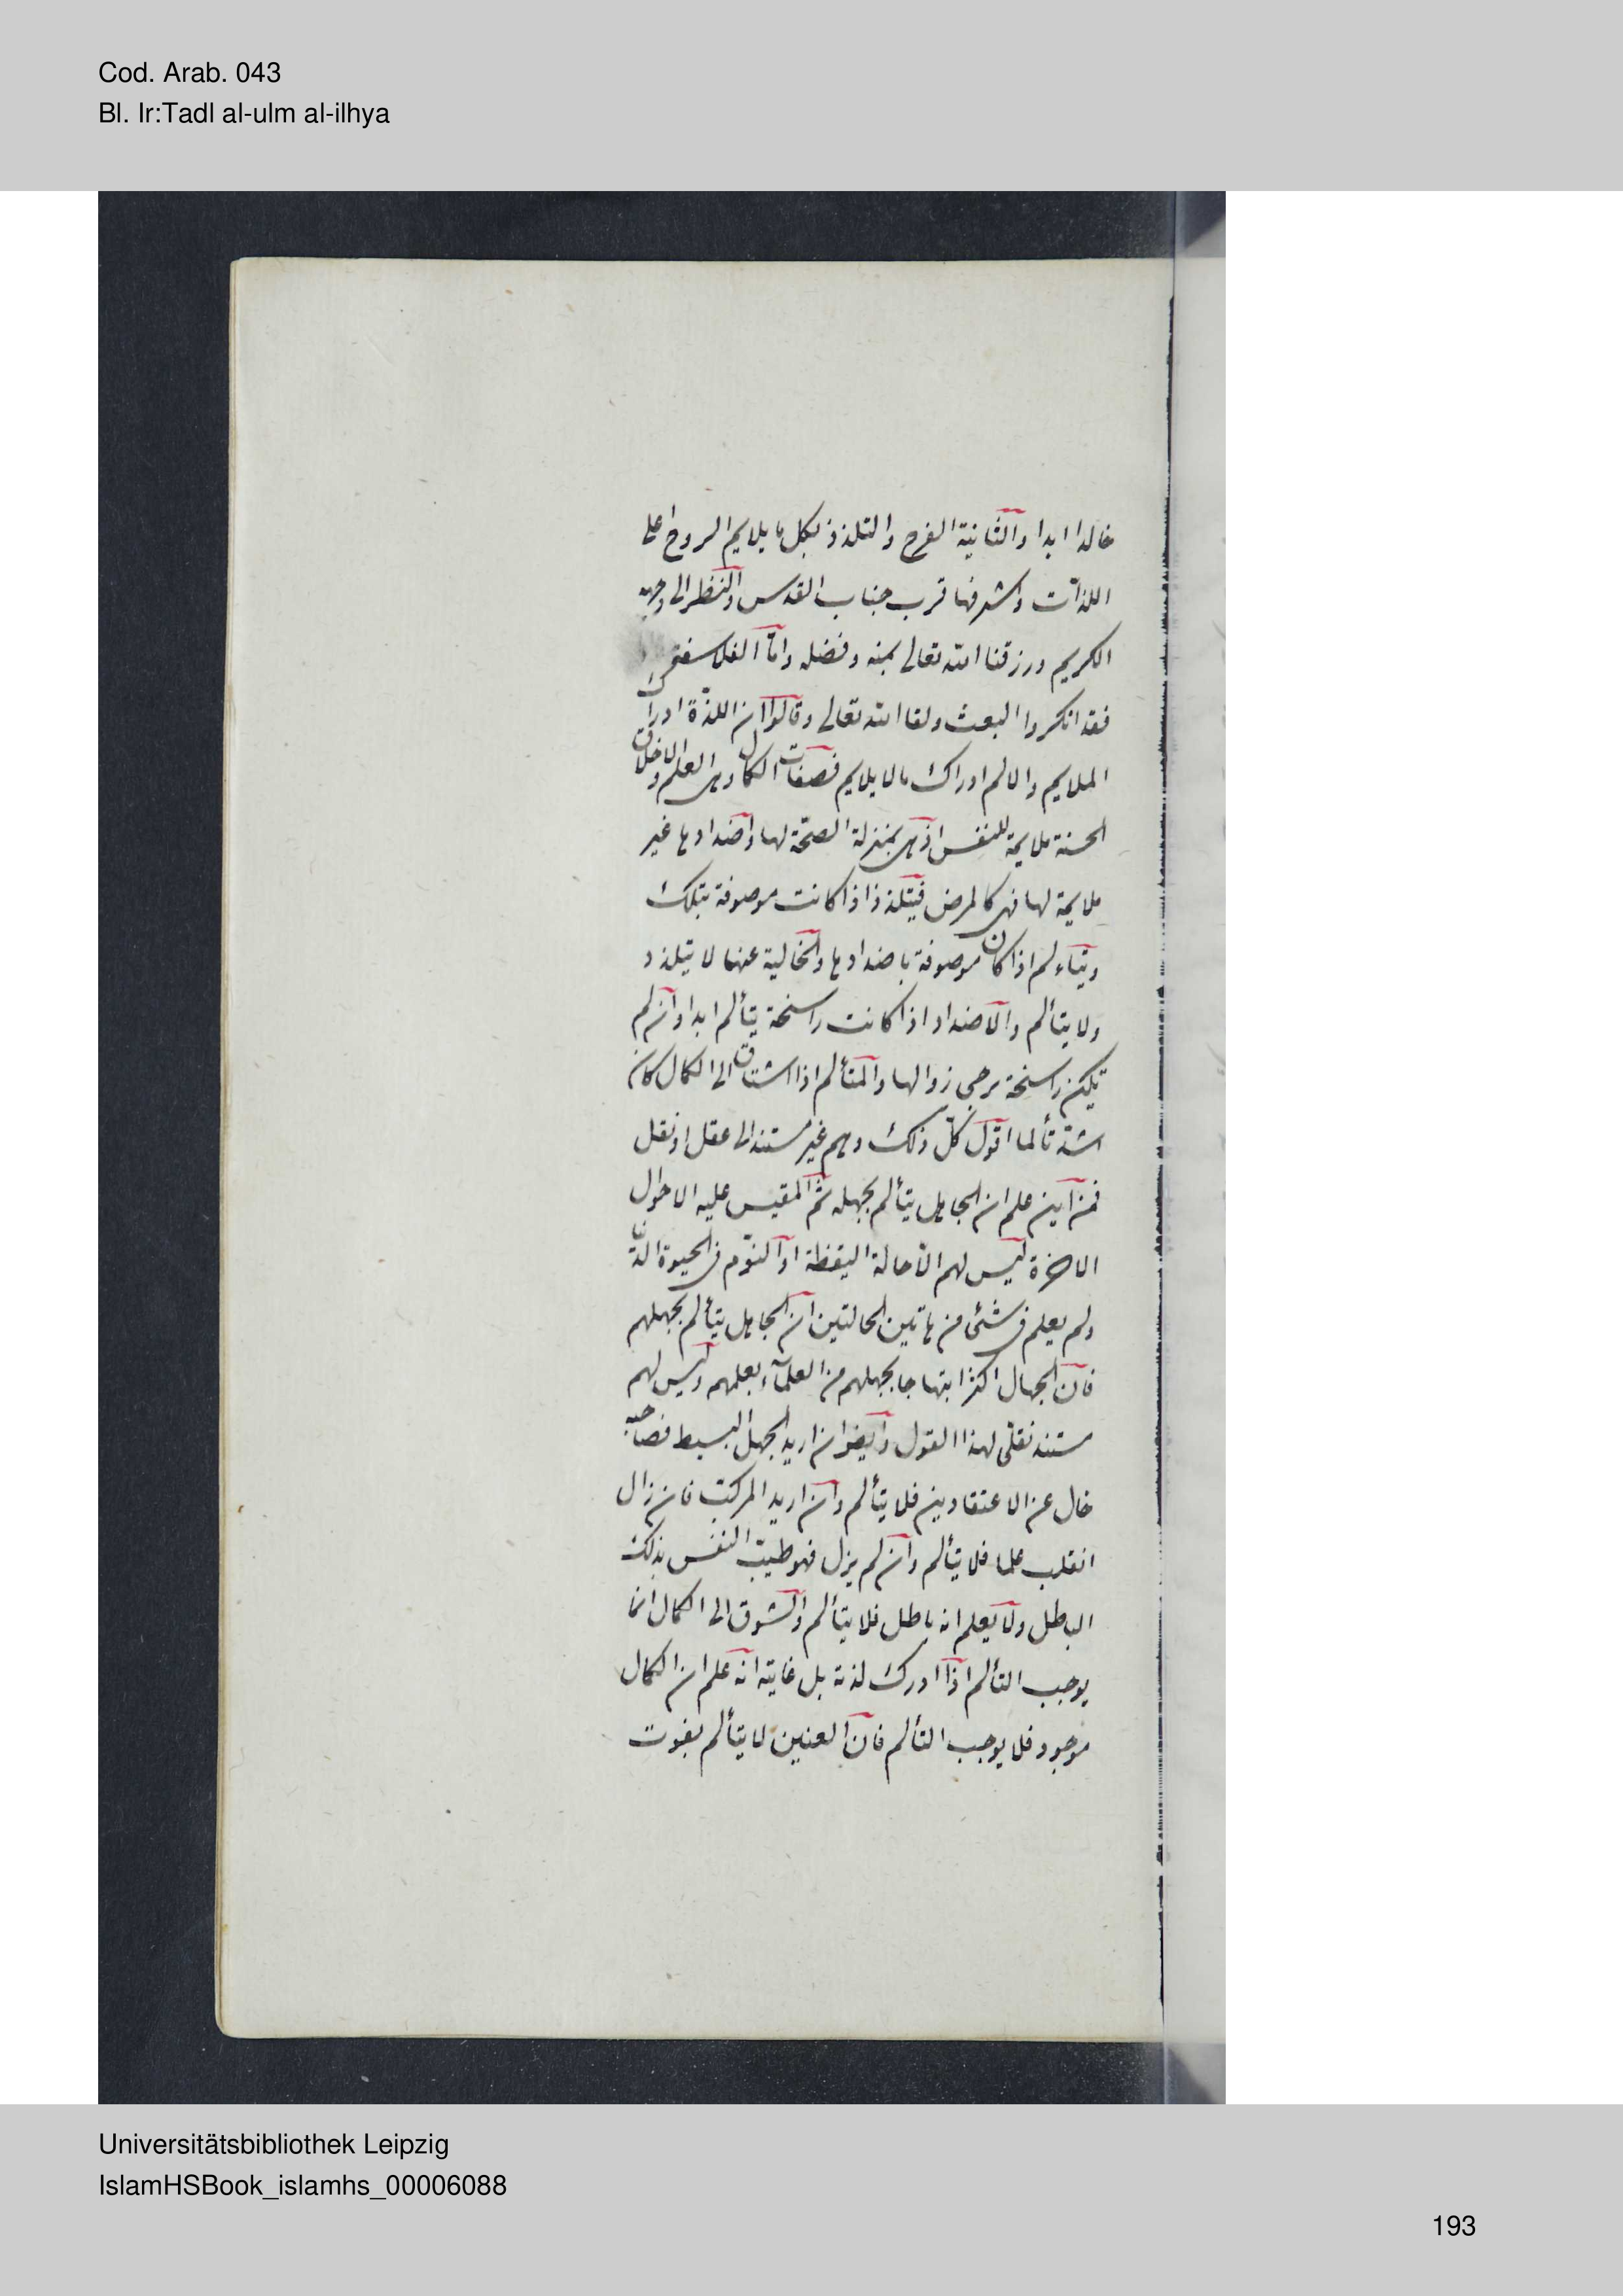 Cod. Arab. 043
Bl. Ir:Tadl al-ulm al-ilhya
خالدا ابدا والثانية الفرح والتلذذ بكل ما يلايم الروح اعلى
اللذات واشرفها قرب جناب القدس والنظر الى وجهه
الكريم ورزقنا الله تعالى بمنه وفضله واما الفلاسفة
فقد انكروا البعث ولقا الله تعالى وقالوا ان اللذة ادراك
الملايم والالم ادراك ما لا يلايم فصفات الكمال وهى العلم والاخلاق
الحسنة ملايمة للنفس اذ هى بمنزلة الصحة لها واضدادها غير
ملايمة لها فهى كالمرض فيتلذذ اذا كانت موصوفة بتلك
ويتاءلم اذا كان موصوفة باضدادها والخالية عنها لا يتلذذ
ولا يتألم والاضداد اذا كانت راسخة يتألم ابدا وان لم
تكن راسخة يرجى زوالها والمتألم اذا اشتاق الى الكمال كان
اشد تألما اقول كل ذلك وهم غير مستند الى عقل او نقل
فمن اين علم ان الجاهل يتألم بجهله ثم المقيس عليه الاحوال
الاخرة ليس لهم الا حالة اليقظة او النوم فى الحيوة الدنيا
ولم يعلم فى شئ من هاتين الحالتين ان الجاهل يتألم بجهلهم
فان الجهال اكثر ابتهاجا بجهلهم من العلماء بعلمهم وليس لهم
مستند نقلى لهذا القول وايضا ان اريد الجهل البسيط فصاحبه
خال عن الاعتقادين فلا يتألم وان اريد المركب فان زال
انقلب علما فلا يتألم وان لم يزل فهو طيب النفس بذلك
الباطل ولا يعلم انه باطل فلا يتألم والشوق الى الكمال انما
يوجب التألم اذا ادرك لذته بل غايته انه علم ان الكمال
موجود فلا يوجب التألم فان العنين لا يتألم بفوت
Universitätsbibliothek Leipzig
IslamHSBook_islamhs_00006088
193